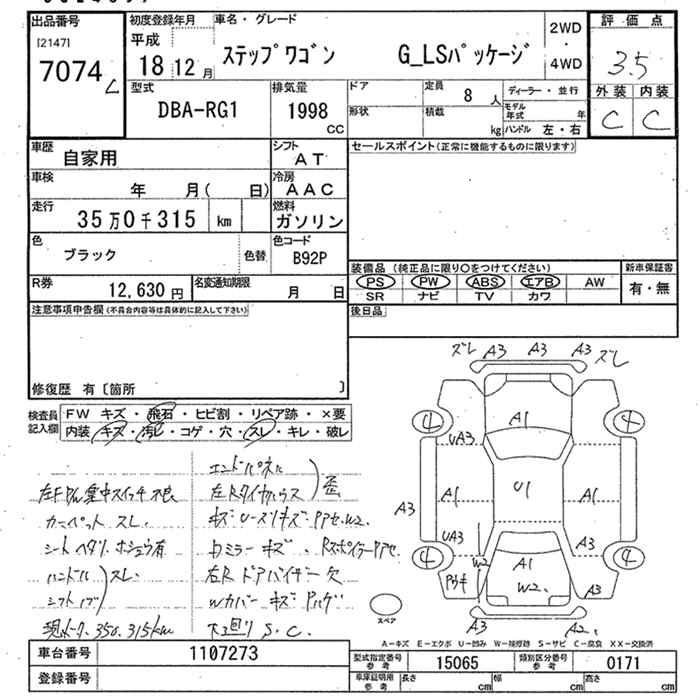 出品番号
[2147]
7074
初度登録年月
平成
18 12 月
車名・グレード
ステップワゴン G_LSパッケージ
2WD
・
4WD
評価点
3.5
外装 内装
C C
型式
DBA-RG1
排気量
1998
CC
ドア
形状
定員
8 人
積載
kg
ディーラー・並行
モデル年式 年
ハンドル 左・右
車歴
自家用
シフト
AT
車検
年 月( 日)
冷房
AAC
走行
35万0千315 km
燃料
ガソリン
色
ブラック
色替
色コード
B92P
R券
12,630 円
名変通知期限
月 日
セールスポイント(正常に機能するものに限ります)
装備品 (純正品に限り○をつけてください)
PS PW ABS エアB AW
SR ナビ TV カワ
新車保証書
有・無
後日品
注意事項申告欄(不具合内容等は具体的に記入して下さい)
修復歴 有〔箇所 〕
検査員記入欄
FW キズ・飛石・ヒビ割・リペア跡・×要
内装・キズ・汚レ・コゲ・穴・スレ・キレ・破レ
左F P/W 集中スイッチ不良
カーペット スレ.
シート ヘタリ. ホシュウ有
ハンドル
シフトノブ
スレ.
現メータ 350.315km
エンドパネル
左Rタイヤハウス
歪
キズ・U-ズリキズ・PアセW2.
ミラーキズ. RスポイラーPアセ.
右R ドアバイザー欠
Wカバー キズ Pハゲ
下回り S.C.
ズレ A3 A3 A3 ズレ
4 4
A1
UA3
A3 A1 U1 A1
UA3 A3
4 4
W2 A1
W2.
A3
A3 A2.
スペア
A-キズ E-エクボ U-凹み W-補修跡 S-サビ C-腐食 XX-交換済
車台番号
1107273
登録番号
型式指定番号
参考
15065
類別区分番号
参考
0171
車庫証明用
参考
長さ cm
幅 cm
高さ cm